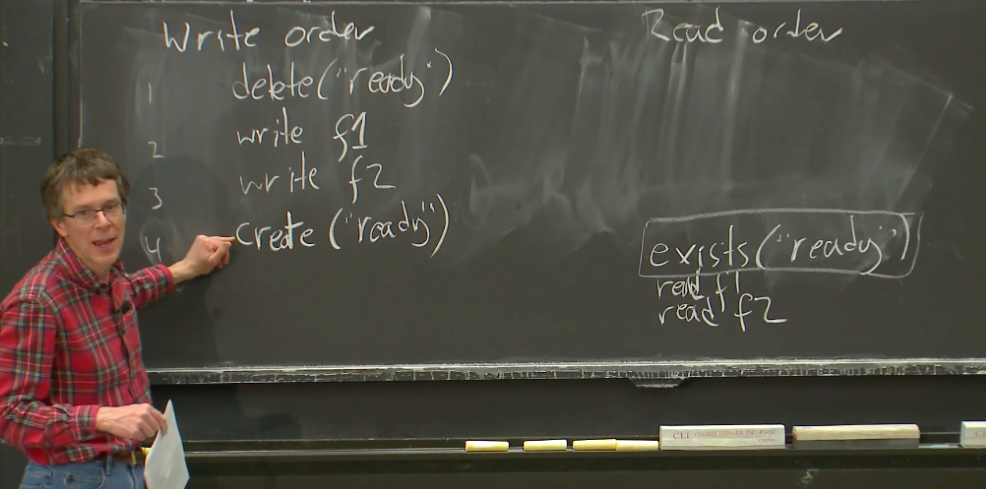 Write order
1 delete("ready")
2 write f1
3 write f2
4 create ("ready")
Read order
exists("ready")
read f1
read f2
CLI